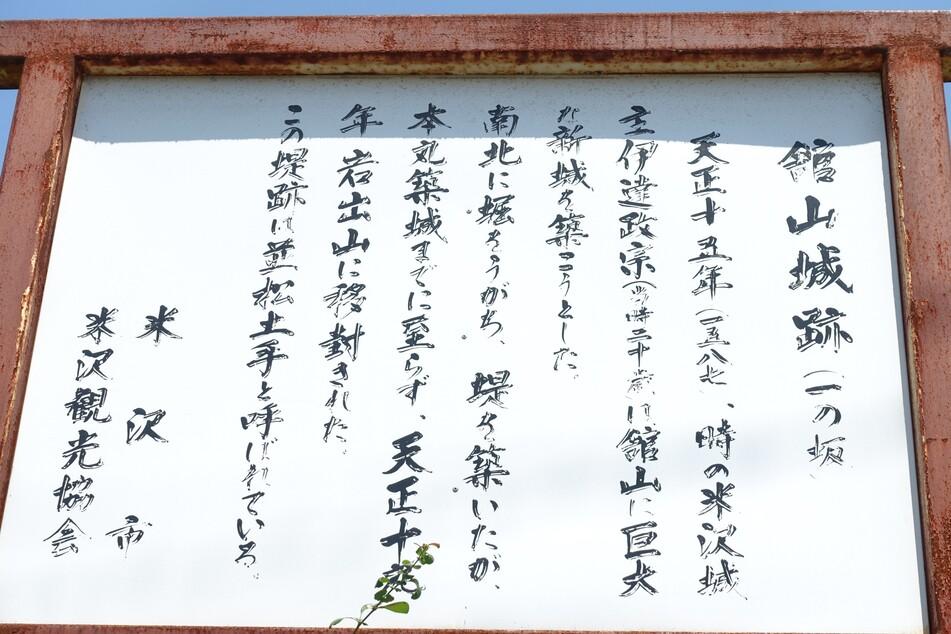 舘山城跡(一の坂)
天正十五年(一五八七)、時の米沢城
主伊達政宗(当時二十歳)は舘山に巨大
な新城を築こうとした。
南北に堀をうがち、堤を築いたが、
本丸築城までに至らず、天正十九
年 岩出山に移封された。
この堤跡は並松土手と呼ばれている。
米沢市
米沢観光協会